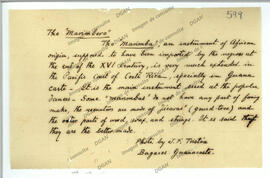 599
The "Marimbero"
The "Marimba", an instrument of African
origin, supposed to have been imported by the negroes at
the end of the XVI century, is very much extended in
the Pacific Coast of Costa Rica, specially in Guana
caste. It is the main instrument used at the popular
dances. Some "marimbas" do not have any part of
make, the resonators are made of "jícaras" (gourd-tree) and
the other parts of wood, wax, and strings. It is said that
they are the better made.
Photo by J. F.
Bagaces Guanacaste.